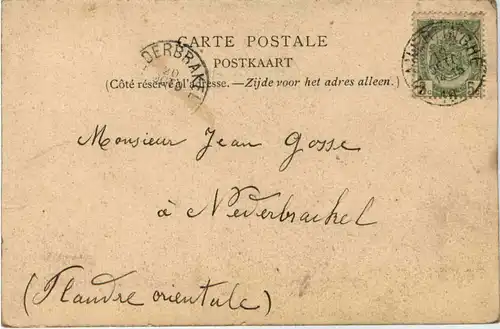 CARTE POSTALE
POSTKAART
(Côté réservé à l'adresse. — Zijde voor het adres alleen.)
DERBRAKEL
20
Monsieur Jean Gosse
à Nederbrackel
(Flandre orientale)